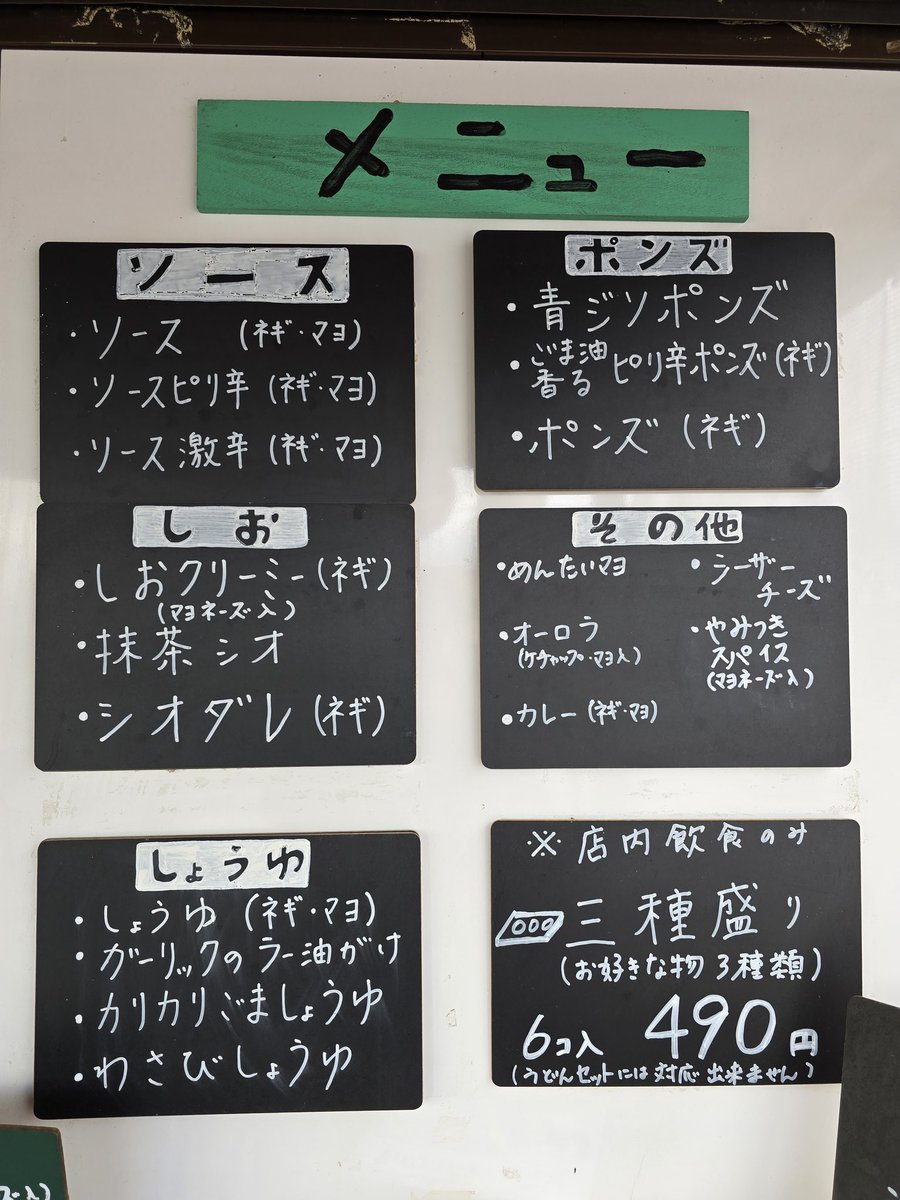 メニュー
ソース
・ソース (ネギ・マヨ)
・ソースピリ辛 (ネギ・マヨ)
・ソース激辛 (ネギ・マヨ)
ポンズ
・青ジソポンズ
・ごま油香る ピリ辛ポンズ (ネギ)
・ポンズ (ネギ)
しお
・しおクリーミー (ネギ)
(マヨネーズ入)
・抹茶シオ
・シオダレ (ネギ)
その他
・めんたいマヨ
・オーロラ
(ケチャップ・マヨ入)
・カレー (ネギ・マヨ)
・シーザー
チーズ
・やみつき
スパイス
(マヨネーズ入)
しょうゆ
・しょうゆ (ネギ・マヨ)
・ガーリックのラー油がけ
・カリカリごましょうゆ
・わさびしょうゆ
※店内飲食のみ
三種盛り
(お好きな物 3種類)
6コ入 490円
(うどんセットには対応出来ません)
ズ入)